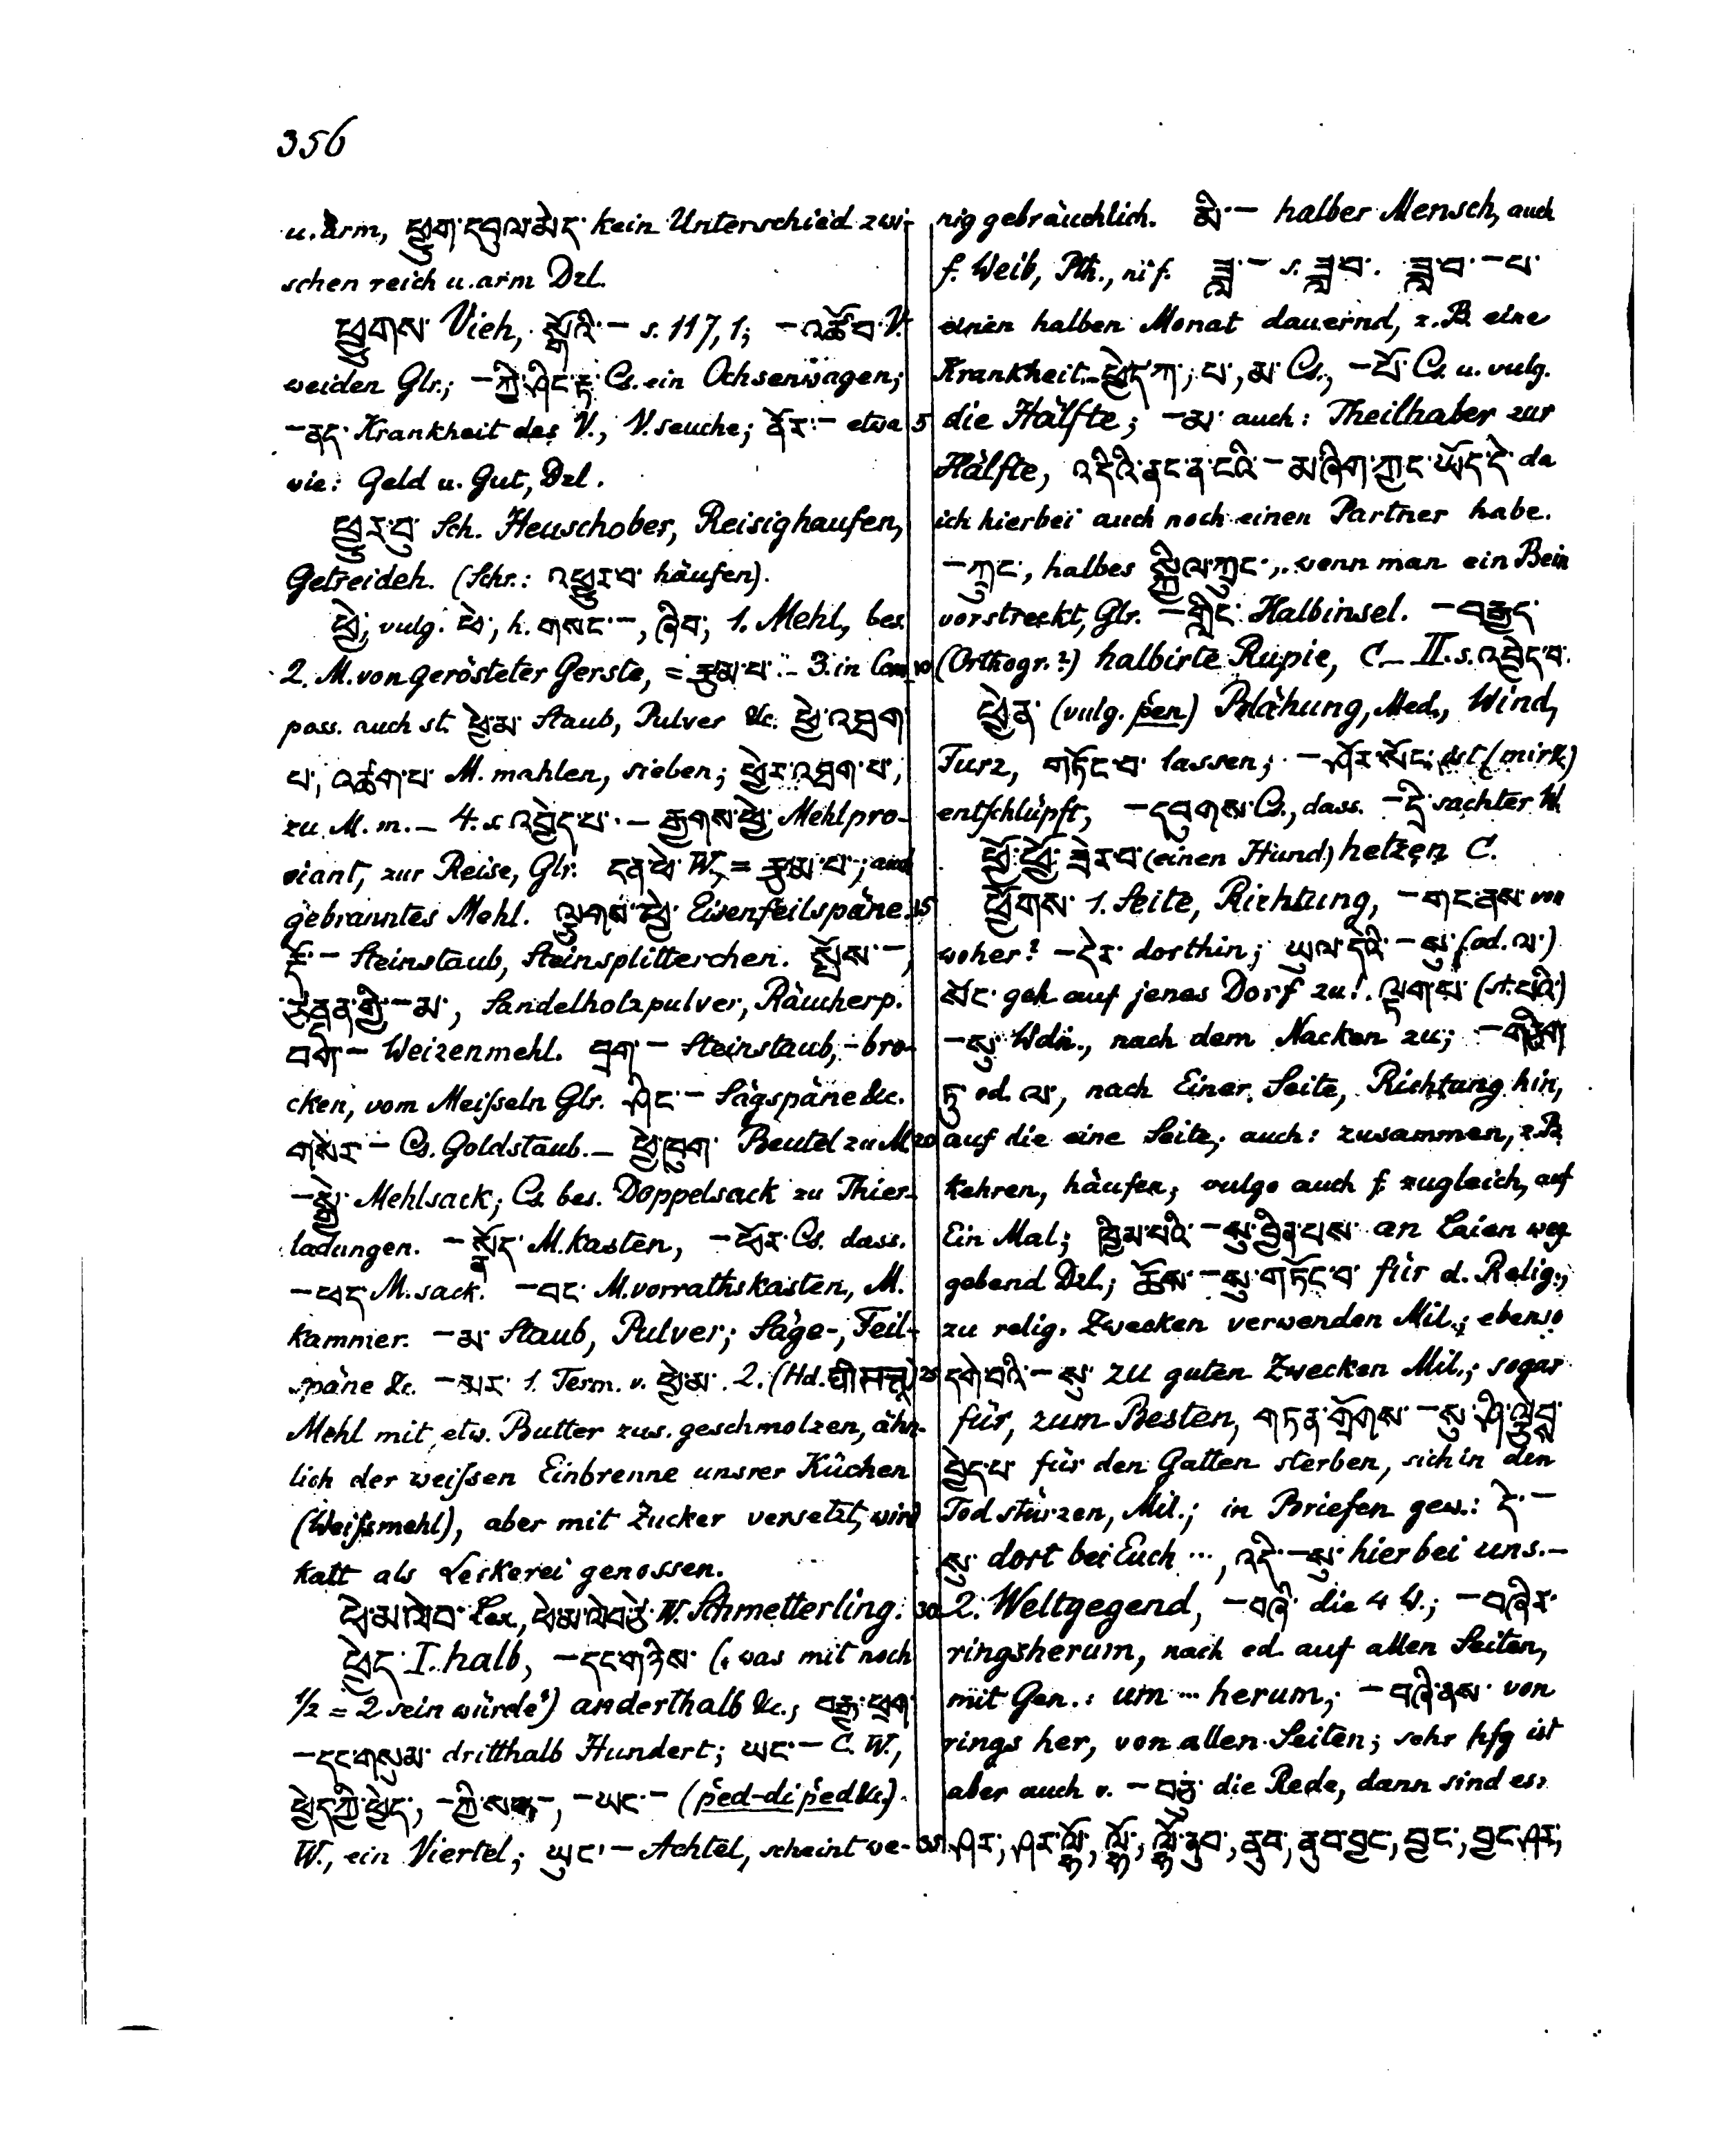 356
u. arm, ཕྱུག་དབུལ་མེད་ kein Unterschied zwi-
schen reich u. arm Dzl.
ཕྱུགས་ Vieh, སྒོའི་ – s. 117, 1; – འཚོབ་ V.
weiden Glr.; – ཀྱི་ཤིང་རྟ་ Cs. ein Ochsenwagen;
– ནད་ Krankheit des V., V. seuche; ནོར་ – etwa
wie: Geld u. Gut, Dzl.
ཕྱུར་བུ་ Sch. Heuschober, Reisighaufen,
Getreideh. (Schr.: འཕྱུར་བ་ häufen).
ཕྱེ་, vulg. ཕེ་, h. གསང་ –, ཞིབ་, 1. Mehl, bes.
2. M. von gerösteter Gerste, = རྩམ་པ་. – 3. in Com-
poss. auch st. ཕྱེ་མ་ Staub, Pulver &c. ཕྱེ་འཐག་
པ་, འཚག་པ་ M. mahlen, sieben; ཕྱེར་འཐག་པ་,
zu M. m. – 4. s. འབྱེད་པ་. – རྒྱགས་ཕྱེ་ Mehlpro-
viant, zur Reise, Glr. དན་ཕེ་ W., = རྩམ་པ་; auch
gebranntes Mehl. ལྕགས་ཕྱེ་ Eisenfeilspäne. 15
རྡོ་ – Steinstaub, Steinsplitterchen. སྤོས་ –,
ཙནྡན་གྱི་ – མ་, Sandelholzpulver, Räucherp.
བག་ – Weizenmehl. བྲག་ – Steinstaub, – bro-
cken, vom Meißeln Glr. ཤིང་ – Sägspäne &c.
གསེར་ – Cs. Goldstaub. – ཕྱེ་ཁུག་ Beutel zu M. 20
– སྒྱེ་ Mehlsack; Cs. bes. Doppelsack zu Thier-
ladungen. – སྣོད་ M. kasten, – ཕོར་ Cs. dass.
– ཕད་ M. sack. – བང་ M. vorrathskasten, M.
kammer. – མ་ Staub, Pulver; Säge-, Feil-
späne &c. – མར་ 1. Term. v. ཕྱེ་མ་. 2. (Hd.
Mehl mit etw. Butter zus. geschmolzen, ähn-
lich der weißen Einbrenne unsrer Küchen
(Weißmehl), aber mit Zucker versetzt, wird
kalt als Leckerei genossen.
ཕྱེ་མ་ལེབ་ Lex., ཕྱེ་མ་ལེབ་ཙེ་ W. Schmetterling. 30
ཕྱེད་ I. halb, – དང་གཉིས་ („was mit noch
1/2 = 2 sein würde“) anderthalb &c.; བརྒྱ་ཕྲག་
– དང་གསུམ་ dritthalb Hundert; ཡང་ – C. W.,
ཕྱེད་ཀྱི་ཕྱེད་, – ཀྱི་ –, – ཡང་ – (ṗed-di ṗed &c.)
W., ein Viertel; ཡུང་ – Achtel, scheint we- 35
nig gebräuchlich. མི་ – halber Mensch, auch
f. Weib, Pth., ni f. ཟླ་ – s. ཟླ་བ་. ཟླ་བ་ – པ་
einen halben Monat dauernd, z. B. eine
Krankheit. – ཕྱེད་ཀ་, པ་, མ་ Cs., – པོ་ Cs. u. vulg.
5 die Hälfte; – མ་ auch: Theilhaber zur
Hälfte, འདིའི་ནང་ན་ངའི་ – མ་ཞིག་ཀྱང་ཡོད་དེ་ da
ich hierbei auch noch einen Partner habe.
– ཀྲུང་, halbes སྐྱིལ་ཀྲུང་, wenn man ein Bein
vorstreckt, Glr. – གླིང་ Halbinsel. – བརྒྱད་
10 (Orthogr.?) halbirte Rupie, C. – II. s. འབྱེད་བ་.
ཕྱེན་ (vulg. ṗen) Blähung, Med., Wind,
Furz, གཏོང་བ་ lassen; – ཤོར་སོང་ ist (mir)
entschlüpft, – དབུགས་ Cs., dass. – དྲི་ sachter W.
ཕྱོ་ཕྱོ་ ཟེར་བ་ (einen Hund) hetzen C.
ཕྱོགས་ 1. Seite, Richtung, – གང་ནས་ von
woher? – དེར་ dorthin; ཡུལ་དེའི་ – སུ་ (od. ལ་)
སོང་ geh auf jenes Dorf zu! ལྟག་པ་ (st. པའི་)
– སུ་ Wdn., nach dem Nacken zu; – གཅིག་
ཏུ་ od. ལ་, nach Einer Seite, Richtung hin,
auf die eine Seite, auch: zusammen, z. B.
kehren, häufen; vulgo auch f. zugleich, auf
Ein Mal; ཁྱིམ་པའི་ – སུ་བྱིན་པས་ an Laien weg
gebend Dzl; ཆོས་ – སུ་གཏོང་བ་ für d. Relig.,
zu relig. Zwecken verwenden Mil.; ebenso
25 དགེ་བའི་ – སུ་ zu guten Zwecken Mil.; sogar
für, zum Besten, གཏན་གྲོགས་ – སུ་ཤི་
བྱེད་པ་ für den Gatten sterben, sich in den
Tod stürzen, Mil.; in Briefen gew.: དེ་ –
སུ་ dort bei Euch ..., འདི་ – སུ་ hier bei uns. –
2. Weltgegend, – བཞི་ die 4 W.; – བཞིར་
ringsherum, nach od. auf allen Seiten,
mit Gen.: um ... herum; – བཞི་ནས་ von
rings her, von allen Seiten; sehr hfg ist
aber auch v. – བཅུ་ die Rede, dann sind es:
ཤར་, ཤར་ལྷོ་, ལྷོ་, ལྷོ་ནུབ་, ནུབ་, ནུབ་བྱང་, བྱང་, བྱང་ཤར་,